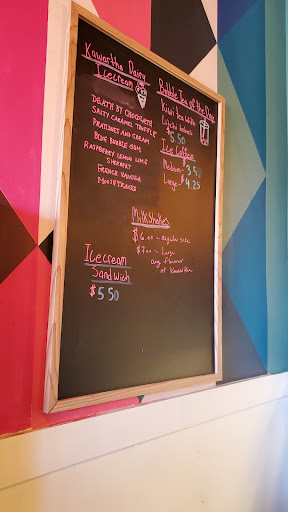 Kawartha Dairy
Icecream
DEATH BY CHOCOLATE
SALTY CARAMEL TRUFFLE
PRALINES AND CREAM
BLUE BUBBLE GUM
RASPBERRY LEMON LIME
SHERBERT
FRENCH VANILLA
MOOSE TRACKS
Bubble Tea of the Day
Kiwi tea with
Litchi bobas
$5.50
Ice Coffee
Medium - 3.50
Large - $4.25
MilkShakes
$6.00 - Regular size
$7.00 - Large
any flavour
of Kawartha
Icecream
Sandwich
$5.50